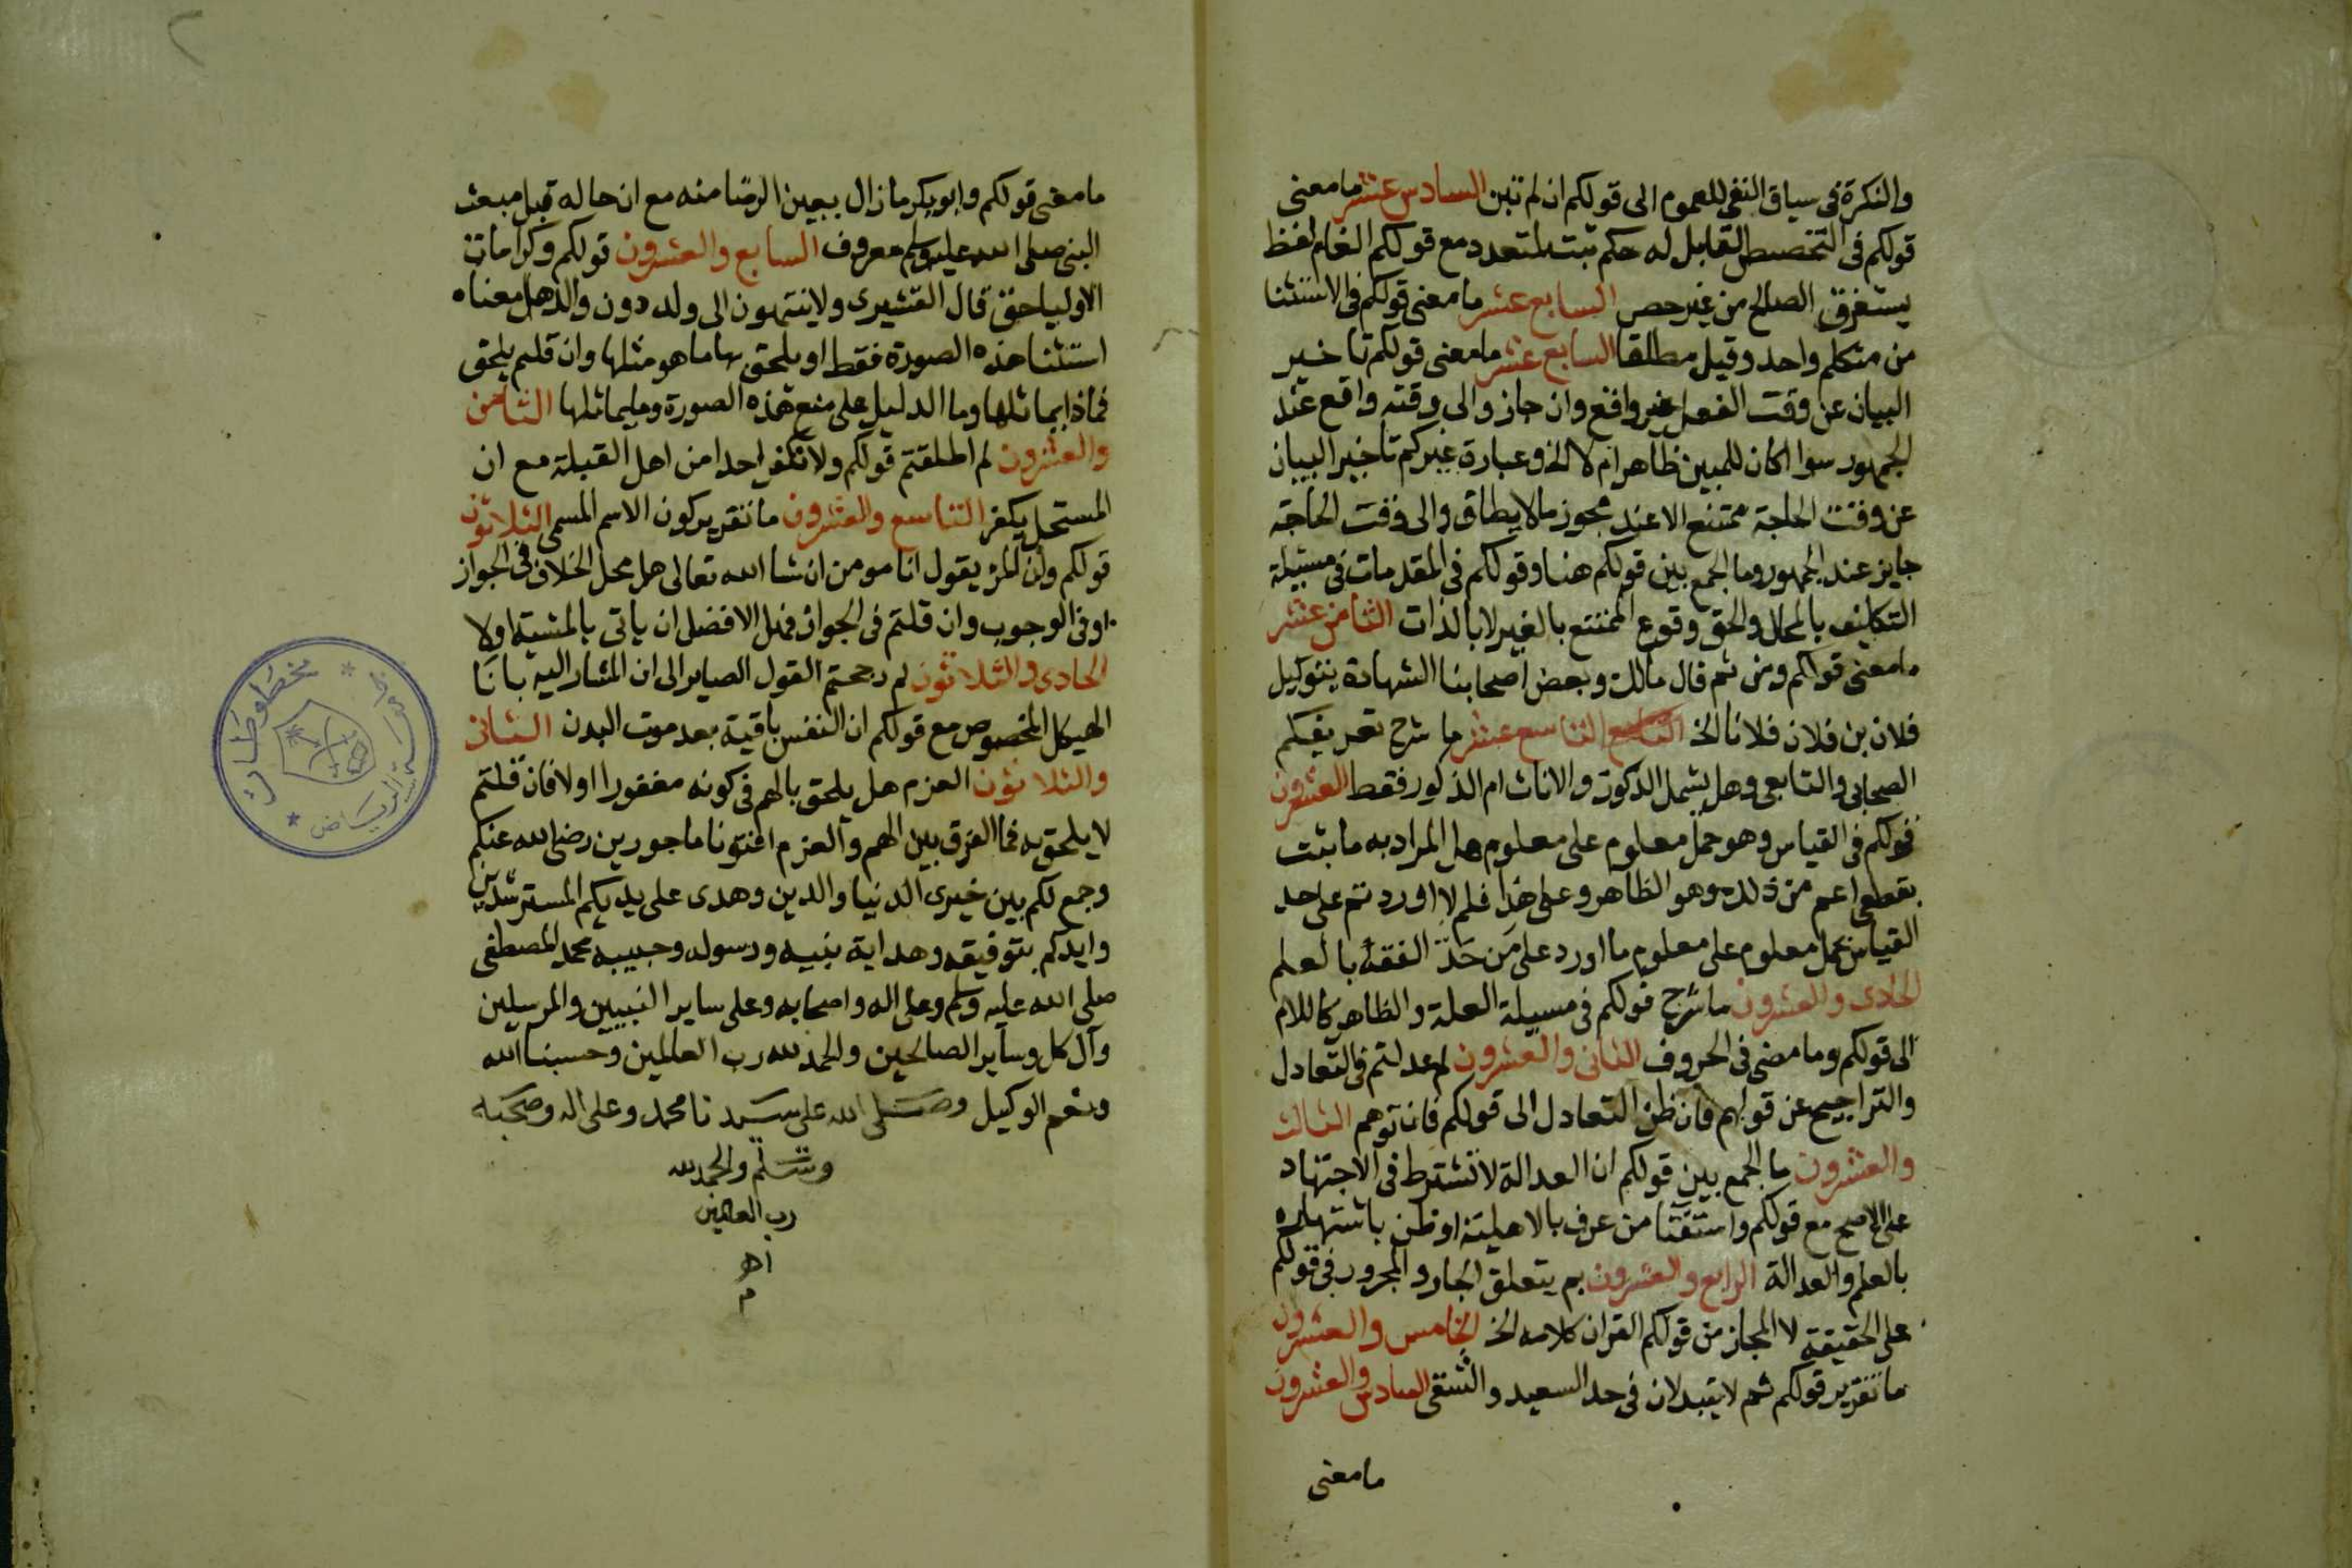 والنكرة فى سياق النفى للعموم الى قولكم ان لم تبن السادس عشر ما معنى
قولكم فى التخصيص القابل له حكم ثبت لمتعدد مع قولكم العام لفظ
يستغرق الصالح من غير حصر السابع عشر ما معنى قولكم فى الاستثنا
من متكلم واحد وقيل مطلقا السابع عشر ما معنى قولكم تاخير
البيان عن وقت الفعل غير واقع وان جاز والى وقته واقع عند
الجمهور سوا اكان للمبين ظاهر ام لا الخ وعبارة غيركم تاخير البيان
عن وقت الحاجة ممتنع الا عند مجوز ما لا يطاق والى وقت الحاجة
جايز عند الجمهور وما الجمع بين قولكم هنا وقولكم فى المقدمات فى مسيلة
التكليف بالمحال والحق وقوع الممتنع بالغير لا بالذات الثامن عشر
ما معنى قولكم ومن ثم قال مالك وبعض اصحابنا الشهادة بتوكيل
فلان بن فلان فلانا الخ التاسع التاسع عشر ما شرح تعريفكم
الصحابى والتابعى وهل يشمل الذكور والاناث ام الذكور فقط العشرون
قولكم فى القياس وهو حمل معلوم على معلوم هل المراد به ما يثبت
بقطعى اعم من ذلك وهو الظاهر وعلى هذا فلم لا اوردتم على حد
القياس بحمل معلوم على معلوم ما اورد على من حَدَّ الفقه بالعلم
الحادى والعشرون ما شرح قولكم فى مسيلة العلة والظاهر كاللام
الى قولكم وما مضى فى الحروف الثانى والعشرون لم عدلتم فى التعادل
والتراجيح عن قولهم فان ظن التعادل الى قولكم فان توهم الثالث
والعشرون ما الجمع بين قولكم ان العدالة لا تشترط فى الاجتهاد
على الاصح مع قولكم واستفتا من عرف بالاهلية او ظن باشتهاره
بالعلم والعدالة الرابع والعشرون بم يتعلق الجار والمجرور فى قولكم
على الحقيقة لا المجاز من قولكم القران كلامه الخ الخامس والعشرون
ما تقرير قولكم ثم لا يتبدلان فى حد السعيد والشقى السادس والعشرون
ما معنى
ما معنى قولكم وابو بكر ما زال بعين الرضا منه مع ان حاله قبل مبعث
النبى صلى الله عليه وسلم معروف السابع والعشرون قولكم وكرامات
الاوليا حق قال القشيرى ولا ينتهون الى ولد دون والد هل معناه
استثنا هذه الصورة فقط او يلحق بها ما هو مثلها وان قلتم يلحق
فماذا يماثلها وما الدليل على منع هذه الصورة وما يماثلها الثامن
والعشرون لم اطلقتم قولكم ولا نكفر احدا من اهل القبلة مع ان
المستحل يكفر التاسع والعشرون ما تقرير كون الاسم المسمى الثلاثون
قولكم وان المرء يقول انا مومن ان شا الله تعالى هل محل الخلاف فى الجواز
او فى الوجوب وان قلتم فى الجواز فهل الافضل ان ياتى بالمشية او لا
الحادى والثلاثون لم رجحتم القول الصاير الى ان المشار اليه بانا
الهيكل المخصوص مع قولكم ان النفس باقية بعد موت البدن الثانى
والثلاثون العزم هل يلحق بالهم فى كونه مغفورا او لا فان قلتم
لا يلحق به فما الفرق بين الهم والعزم افتونا ماجورين رضى الله عنكم
وجمع لكم بين خيرى الدنيا والدين وهدى على يديكم المسترشدين
وايدكم بتوفيقه وهداية نبيه ورسوله وحبيبه محمد المصطفى
صلى الله عليه وسلم وعلى اله واصحابه وعلى ساير النبيين والمرسلين
وآل كل وساير الصالحين والحمد لله رب العالمين وحسبنا الله
ونعم الوكيل وصلى الله على سيدنا محمد وعلى اله وصحبه
وسلم والحمد لله
رب العالمين
اهـ
م
مخطوطات
الرياض